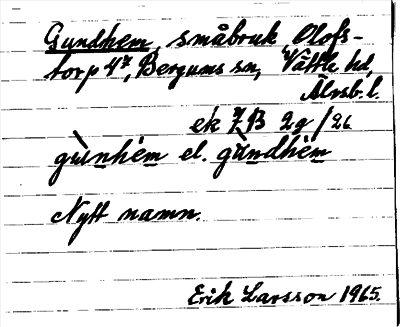 Gundhem, småbruk, Olofs-
torp 4⁷, Bergums sn, Vättle hd,
Älvsb. l.
ek 7 B 2g/26
gùnhèm el. gùndhèm
Nytt namn.
Erik Larsson 1965.